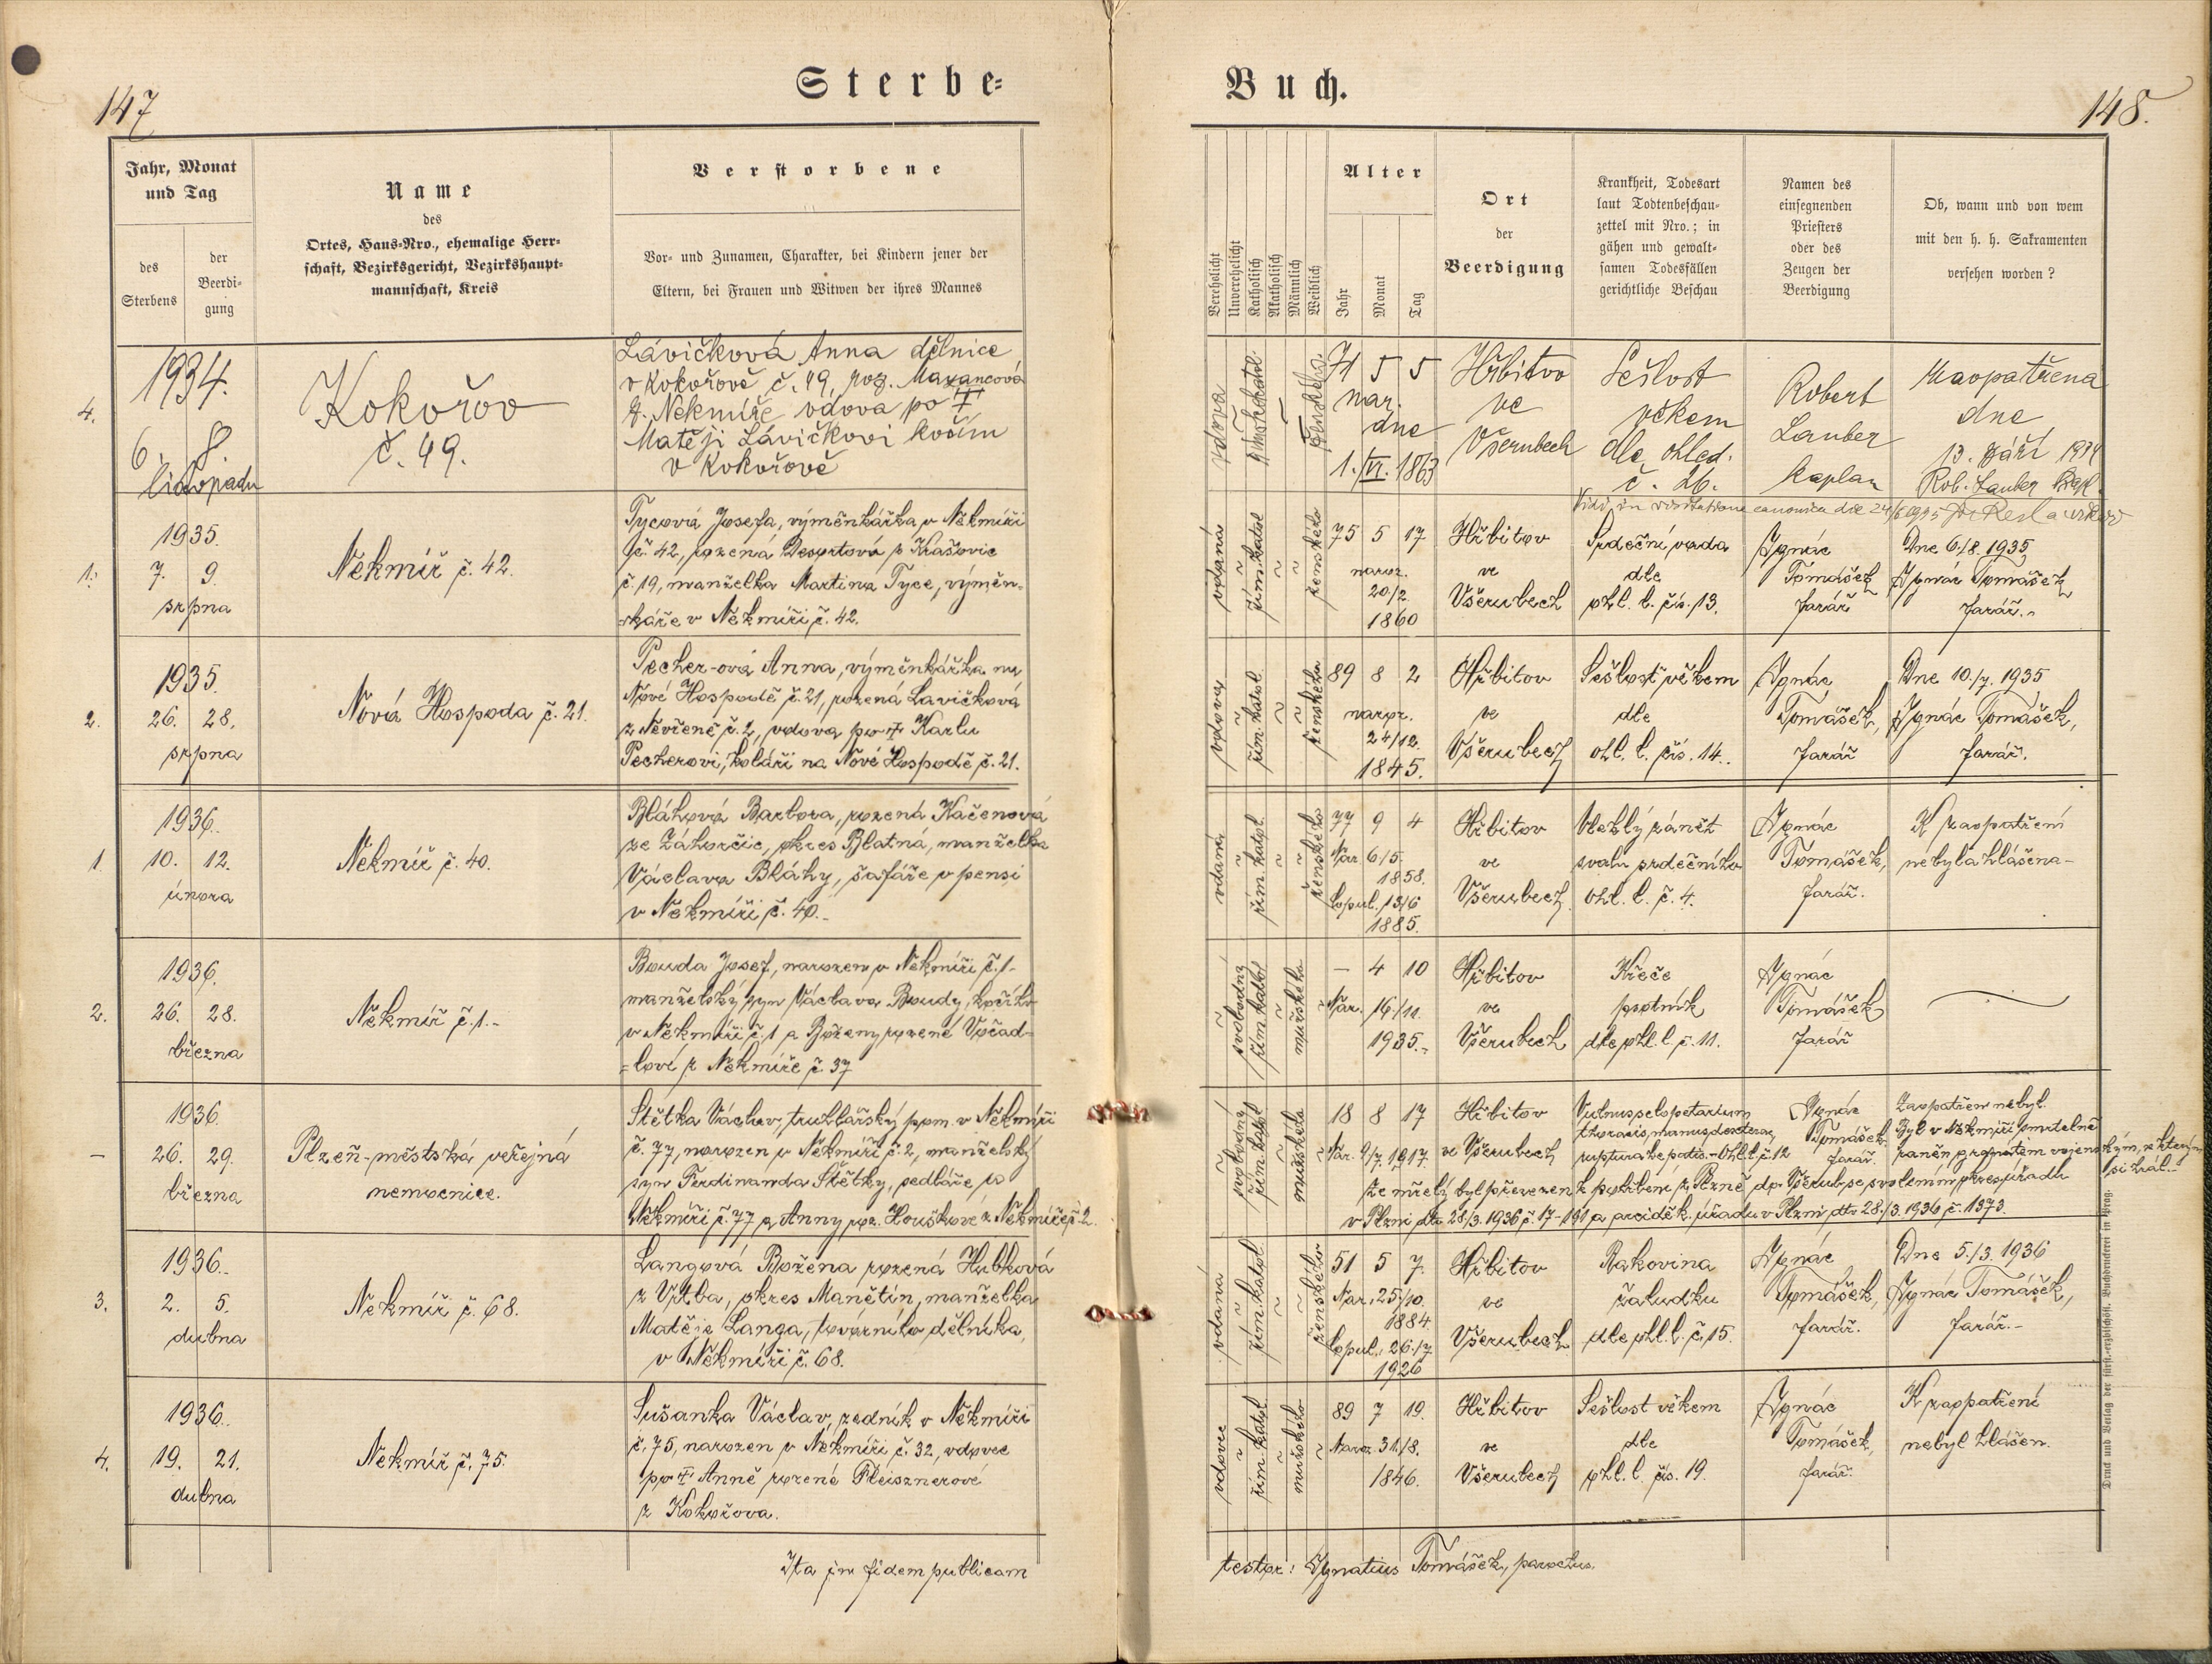 147
Sterbe-
Jahr, Monat
und Tag
des
Sterbens
der
Beerdi-
gung
Name
des
Ortes, Haus-Nro., ehemalige Herr-
schaft, Bezirksgericht, Bezirkshaupt-
mannschaft, Kreis
Verstorbene
Vor- und Zunamen, Charakter, bei Kindern jener der
Eltern, bei Frauen und Witwen der ihres Mannes
4.
1934.
6. 8.
listopadu
Kokořov
č. 49.
Lávičková Anna dělnice
v Kokořově č. 49, roz. Mazancová
z Nekmíře vdova po †
Matěji Lávičkovi
v Kokořově
1.
1935.
7. 9.
srpna
Nekmíř č. 42.
Tycová Josefa, výměnkářka v Nekmíři
č. 42, rozená z Krašovic
č. 19, manželka Martina Tyce, výměn-
-káře v Nekmíři č. 42.
2.
1935.
26. 28.
srpna
Nová Hospoda č. 21.
Pecher-ová Anna, výměnkářka na
Nové Hospodě č. 21, rozená Lavičková
z Nevřeně č. 2, vdova po † Karlu
Pecherovi, koláři na Nové Hospodě č. 21.
1.
1936.
10. 12.
února
Nekmíř č. 40.
Bláhová Barbora, rozená Kačenová
ze Záhorčic, okres Blatná, manželka
Václava Bláhy, šafáře v pensi
v Nekmíři č. 40.-
2.
1936.
26. 28.
března
Nekmíř č. 1.-
Bouda Josef, narozen v Nekmíři č. 1-
manželský syn Václava Boudy,
v Nekmíři č. 1 a Boženy rozené Vočad-
=lové z Nekmíře č. 37
-
1936
26. 29.
března
Plzeň-městská veřejná
nemocnice.
Štětka Václav, truhlářský pom. v Nekmíři
č. 77, narozen v Nekmíři č. 2, manželský
syn Ferdinanda Štětky, sedláře v
Nekmíři č. 77 a Anny roz. Houškové z Nekmíře č. 2.
3.
1936.
2. 5.
dubna
Nekmíř č. 68.
Langová Božena rozená Hubková
z Vrtba, okres Manětín, manželka
Matěje Langa, továrního dělníka,
v Nekmíři č. 68.
4.
1936.
19. 21.
dubna
Nekmíř č. 75.
Sušanka Václav, zedník v Nekmíři
č. 75, narozen v Nekmíři č. 32, vdovec
po † Anně rozené Pleisznerové
z Kokořova.
Ita in fidem publicam
Buch.
148.
Verehelicht
Unverehelicht
Katholisch
Akatholisch
Männlich
Weiblich
Alter
Jahr
Monat
Tag
Ort
der
Beerdigung
Krankheit, Todesart
laut Todtenbeschau-
zettel mit Nro.; in
gähen und gewalt-
samen Todesfällen
gerichtliche Beschau
Namen des
einsegnenden
Priesters
oder des
Zeugen der
Beerdigung
Ob, wann und von wem
mit den h. h. Sakramenten
versehen worden?
vdova
71 5 5
nar.
dne
1./VI. 1863
Hřbitov
ve
Všerubech
Sešlost
věkem
dle ohled.
č. 26.
Robert
Lauber
kaplan
Zaopatřena
dne
13. září 1934
Rob. Lauber kapl.
Vidi in visitatione canonica die 24/6 1935
vdaná
řím. katol.
ženského
75 5 17
naroz.
20/2
1860
Hřbitov
ve
Všerubech
Srdeční vada
dle
ohl. l. čís. 13.
Ignác
Tomášek
farář
Dne 6./8. 1935
Ignác Tomášek
farář.-
vdova
řím. katol.
ženského
89 8 2
naroz.
24/12.
1845.
Hřbitov
ve
Všerubech
Sešlost věkem
dle
ohl. l. čís. 14.
Ignác
Tomášek,
farář
Dne 10./7. 1935
Ignác Tomášek,
farář.
vdaná
řím. katol.
ženského
77 9 4
Nar. 6/5.
1858.
kopul. 13/6
1885.
Hřbitov
ve
Všerubech
Vleklý zánět
svalu srdečního
ohl. l. č. 4.
Ignác
Tomášek,
farář.
K zaopatření
nebyla hlášena-
svobodný
řím. katol.
mužského
- 4 10
Nar. 16/11.
1935.-
Hřbitov
ve
Všerubech
Křeče
psotník
dle ohl. l. č. 11.
Ignác
Tomášek
farář
svobodný
řím. katol.
mužského
18 8 17
Nar. 9/7. 1917
Hřbitov
ve Všerubech
Vulnus sclopetarium
thoracis, manus dextrae,
ruptura hepatis.- Ohl. l. č. 12
Ignác
Tomášek
farář.
Zaopatřen nebyl.
Byl v Nekmíři smrtelně
raněn granátem vojenským, se kterým
si hrál.-
Zemřelý byl převezen k pohřbení z Plzně do Všerub se svolením okres. úřadu
v Plzni dto 28/3. 1936 č. 17-191 a arciděk. úřadu v Plzni dto 28./3. 1936 č. 1373.
vdaná
řím. katol.
ženského
51 5 7.
Nar. 25/10.
1884
kopul. 26./7.
1926
Hřbitov
ve
Všerubech
Rakovina
žaludku
dle ohl. l. č. 15.
Ignác
Tomášek,
farář.
Dne 5./3. 1936
Ignác Tomášek,
farář.-
vdovec
řím. katol.
mužského
89 7 19.
Naroz. 31./8.
1846.
Hřbitov
ve
Všerubech
Sešlost věkem
dle
ohl. l. čís. 19.
Ignác
Tomášek,
farář.
K zaopatření
nebyl hlášen.
testor: Ignatius Tomášek, parochus.
Druck und Verlag der fürst.-erzbischöfl. Buchdruckerei in Prag.